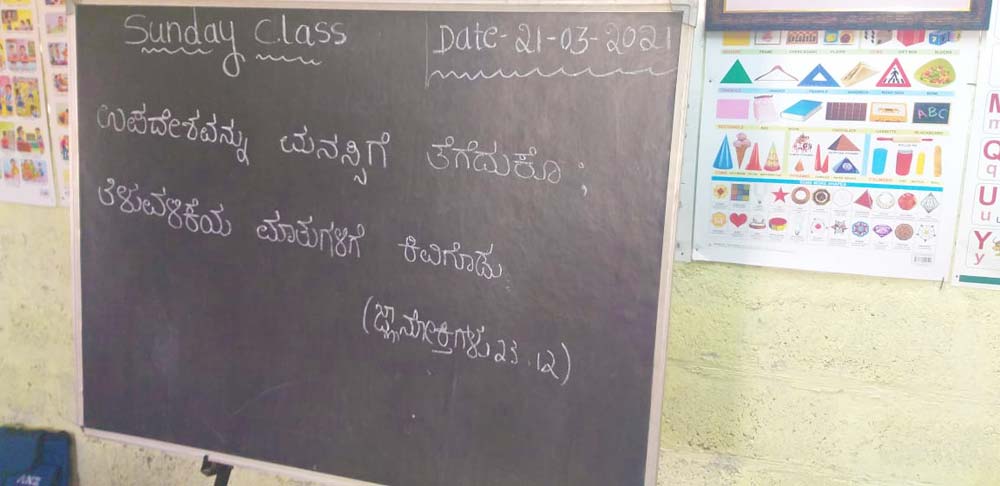 Sunday Class
Date- 21-03-2021
ಉಪದೇಶವನ್ನು ಮನಸ್ಸಿಗೆ ತೆಗೆದುಕೋ ;
ತಿಳುವಳಿಕೆಯ ಮಾತುಗಳಿಗೆ ಕಿವಿಗೊಡು
(ಜ್ಞಾನೋಕ್ತಿಗಳು 23 . 12)
ABC
M
m
Q
q
U
u
Y
y